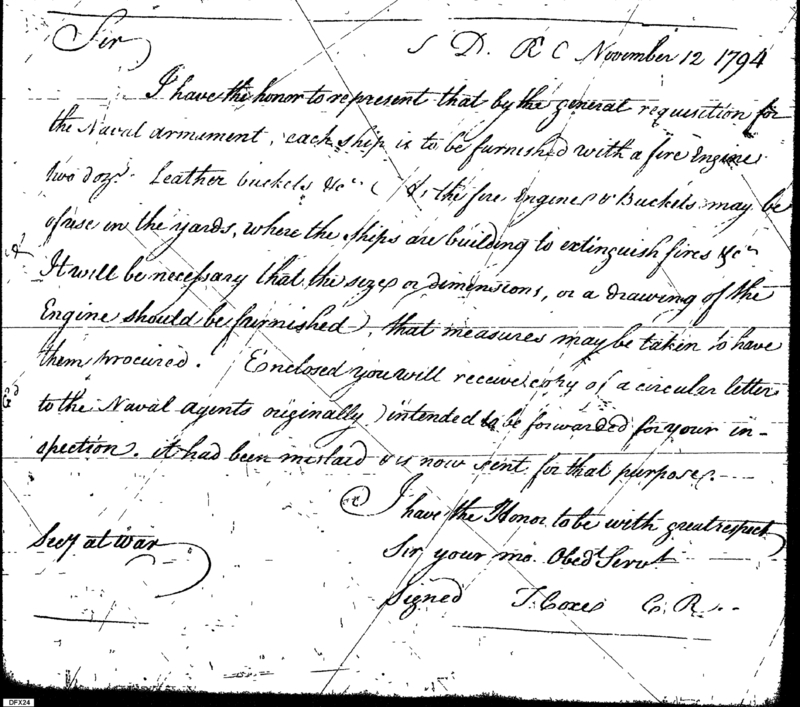 Sir
D. R C November 12 1794
I have the honor to represent that by the general requisition for
the Naval armament, each ship is to be furnished with a fire Engine
two doz. Leather buckets &c. As the fire Engines & Buckets may be
of use in the yards, where the ships are building to extinguish fires &c
It will be necessary that the sizes or dimensions, or a drawing of the
Engine should be furnished, that measures may be taken to have
them procured. Enclosed you will receive copy of a circular letter
to the Naval agents originally intended to be forwarded for your in-
spection. it had been mislaid & is now sent for that purpose.
I have the Honor to be with great respect
Secy at war
Sir your mo. Obedt Servt
Signed T. Coxe C. R.
DFX24